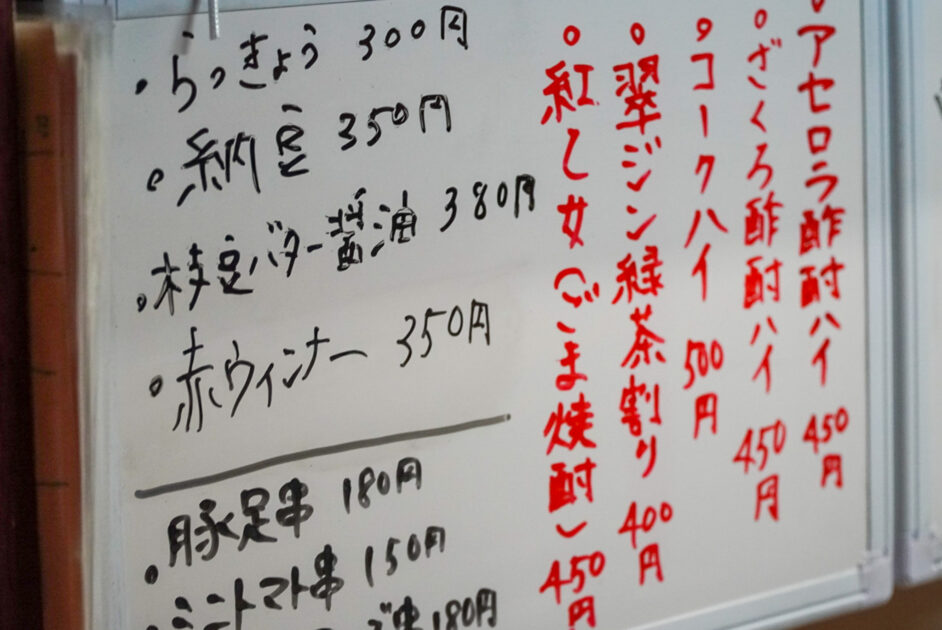 ・アセロラ酢酎ハイ 450円
・ざくろ酢酎ハイ 450円
・コークハイ 500円
・翠ジン緑茶割り 400円
・紅乙女(ごま焼酎) 450円
・らっきょう 300円
・納豆 350円
・枝豆バター醤油 380円
・赤ウィンナー 350円
・豚足串 180円
・ミニトマト串 150円
串 180円